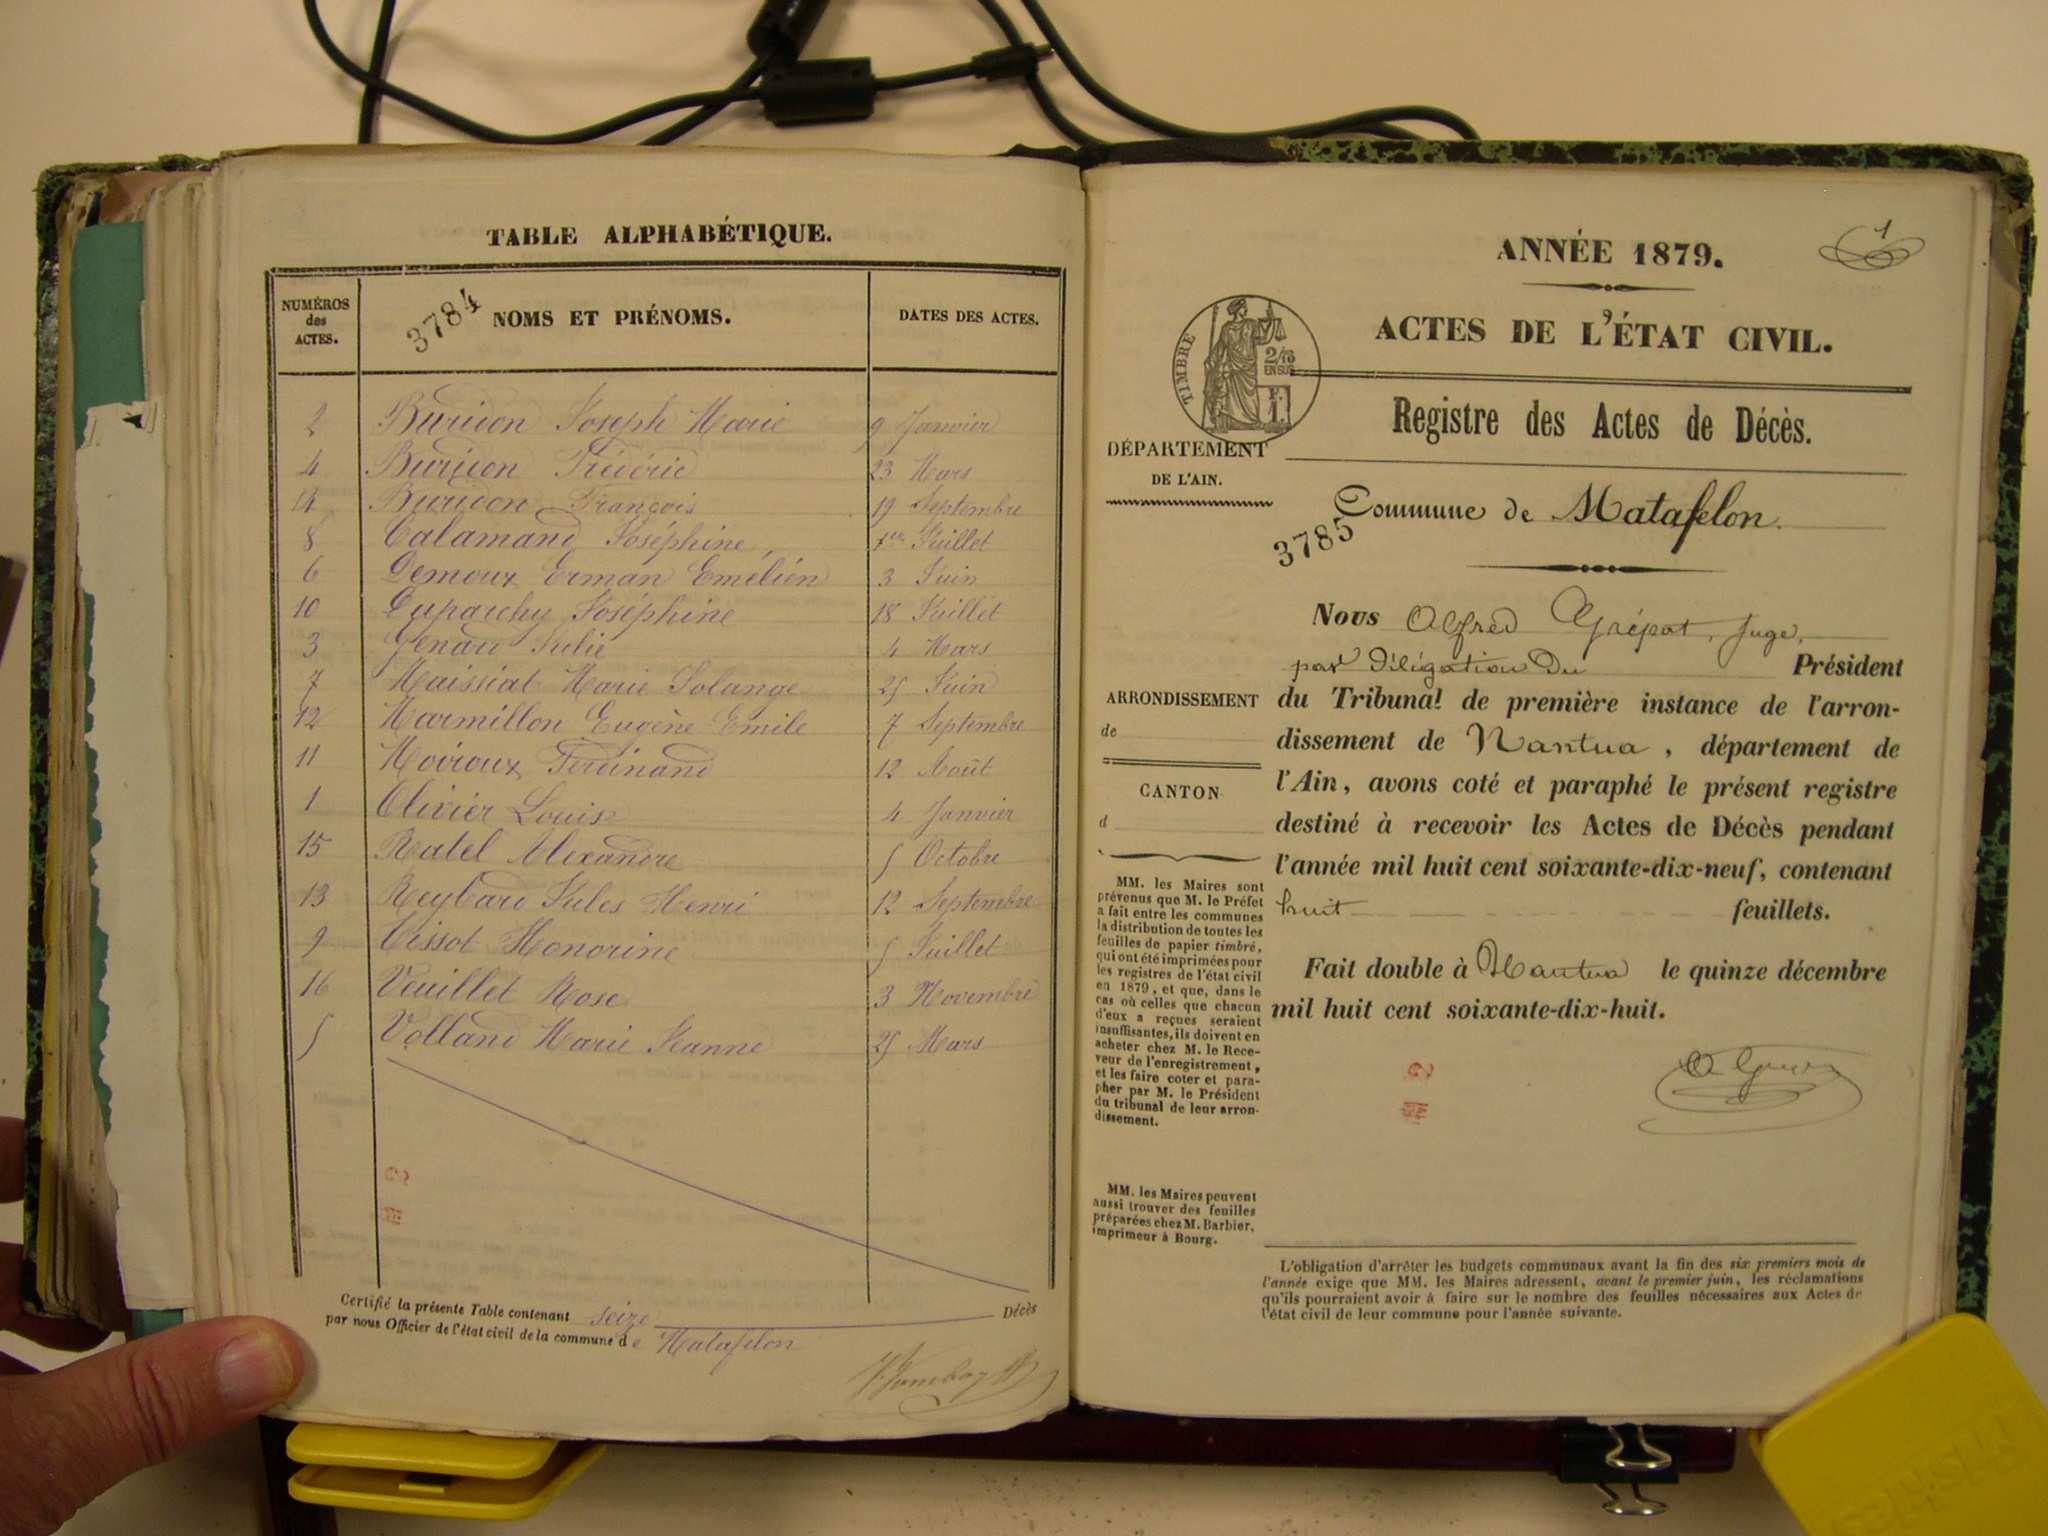 TABLE ALPHABÉTIQUE.
NUMÉROS des ACTES.
3784
NOMS ET PRÉNOMS.
DATES DES ACTES.
2 Buridon Joseph Marie 9 Janvier
4 Buridon Fréderic 23 Mars
14 Buridon François 19 Septembre
8 Calamand Joséphine 1er Juillet
6 Demoux Erman Emélien 3 Juin
10 Duparchy Joséphine 18 Juillet
3 Genard Julie 4 Mars
7 Maissiat Marie Solange 25 Juin
12 Marmillon Eugène Emile 7 Septembre
11 Moiroux Ferdinand 12 Août
1 Olivier Louise 4 Janvier
15 Ratel Alexandre 5 Octobre
13 Reybard Jules Henri 12 Septembre
9 Tissot Honorine 5 Juillet
16 Veuillet Rose 3 Novembre
5 Volland Marie Jeanne 25 Mars
Certifié la présente Table contenant seize Décès
par nous Officier de l'état civil de la commune de Matafelon
1
ANNÉE 1879.
ACTES DE L'ÉTAT CIVIL.
TIMBRE
2/10
EN SUS
F.
1.
Registre des Actes de Décès.
DÉPARTEMENT
DE L'AIN.
Commune de Matafelon.
3785
Nous Alfred Grépat, Juge,
par délégation du Président
du Tribunal de première instance de l'arron-
dissement de Nantua, département de
l'Ain, avons coté et paraphé le présent registre
destiné à recevoir les Actes de Décès pendant
l'année mil huit cent soixante-dix-neuf, contenant
huit feuillets.
Fait double à Nantua le quinze décembre
mil huit cent soixante-dix-huit.
ARRONDISSEMENT
de
CANTON
d
MM. les Maires sont
prévenus que M. le Préfet
a fait entre les communes
la distribution de toutes les
feuilles de papier timbré,
qui ont été imprimées pour
les registres de l'état civil
en 1879, et que, dans le
cas où celles que chacun
d'eux a reçues seraient
insuffisantes, ils doivent en
acheter chez M. le Rece-
veur de l'enregistrement,
et les faire coter et para-
pher par M. le Président
du tribunal de leur arron-
dissement.
MM. les Maires peuvent
aussi trouver des feuilles
préparées chez M. Barbier,
imprimeur à Bourg.
L'obligation d'arrêter les budgets communaux avant la fin des six premiers mois de
l'année exige que MM. les Maires adressent, avant le premier juin, les réclamations
qu'ils pourraient avoir à faire sur le nombre des feuilles nécessaires aux Actes de
l'état civil de leur commune pour l'année suivante.